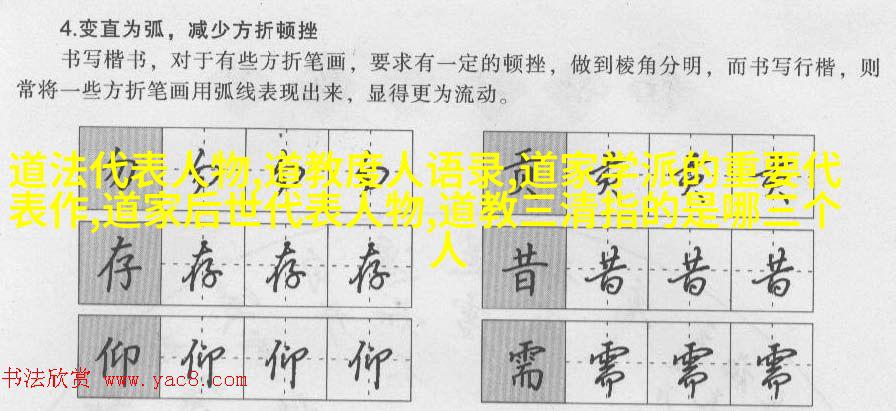 4.变直为弧，减少方折顿挫
书写楷书，对于有些方折笔画，要求有一定的顿挫，做到棱角分明，而书写行楷，则
常将一些方折笔画用弧线表现出来，显得更为流动。
道法代表人物,道教度人语录,道家学派的重要代
表作,道家后世代表人物,道教三清指的是哪三个
人
存 存 存 存
昔 昔 昔 昔
仰 仰 仰 仰
需 需 需 需
书法欣赏 www.yac8.com